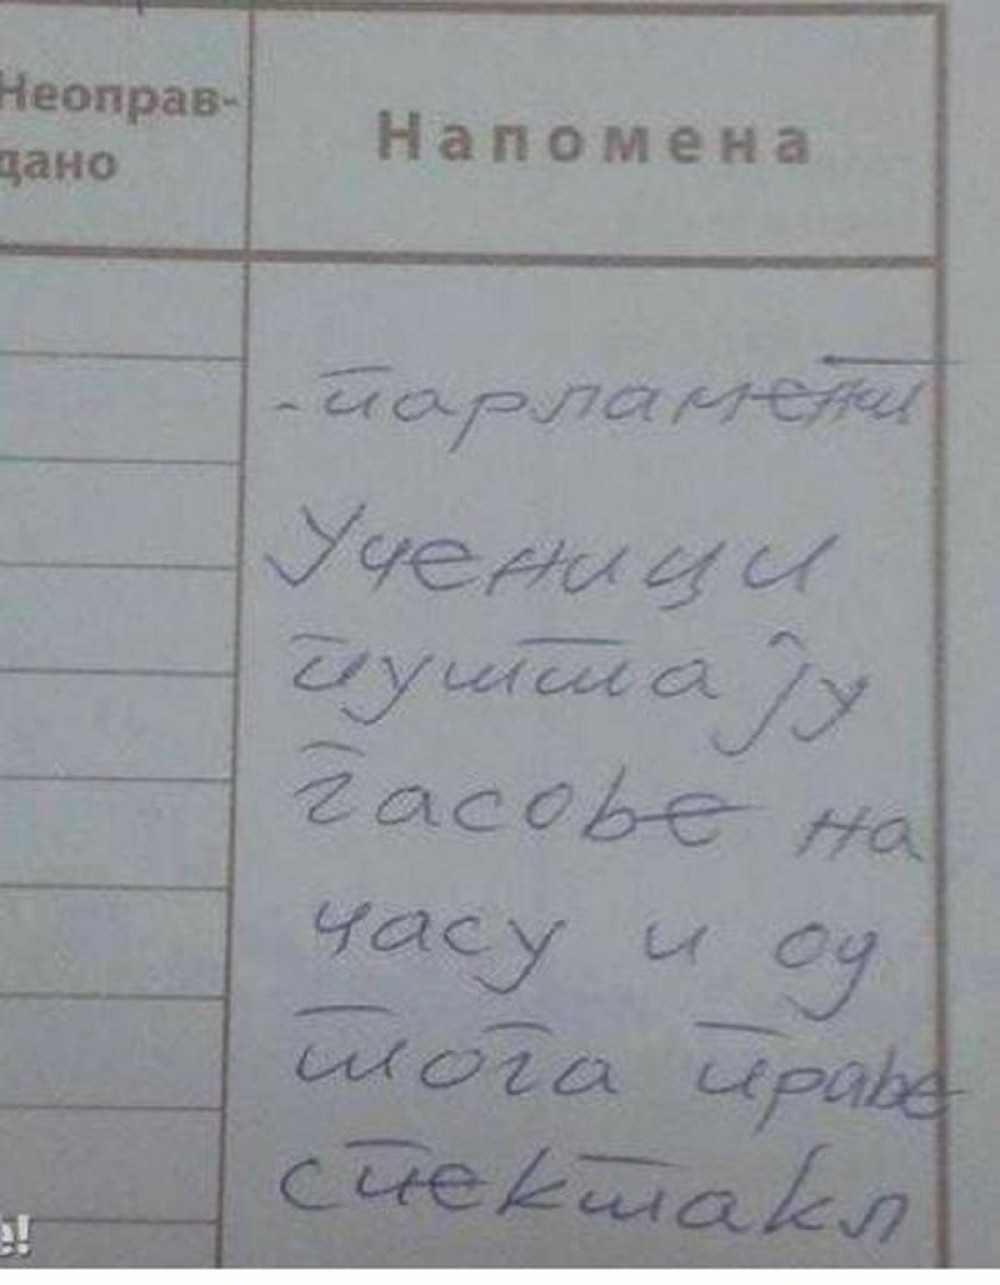 Неоправ-
дано
Напомена
-парламент
Ученици
пуштају
гасове на
часу и од
тога праве
спектакл
e!